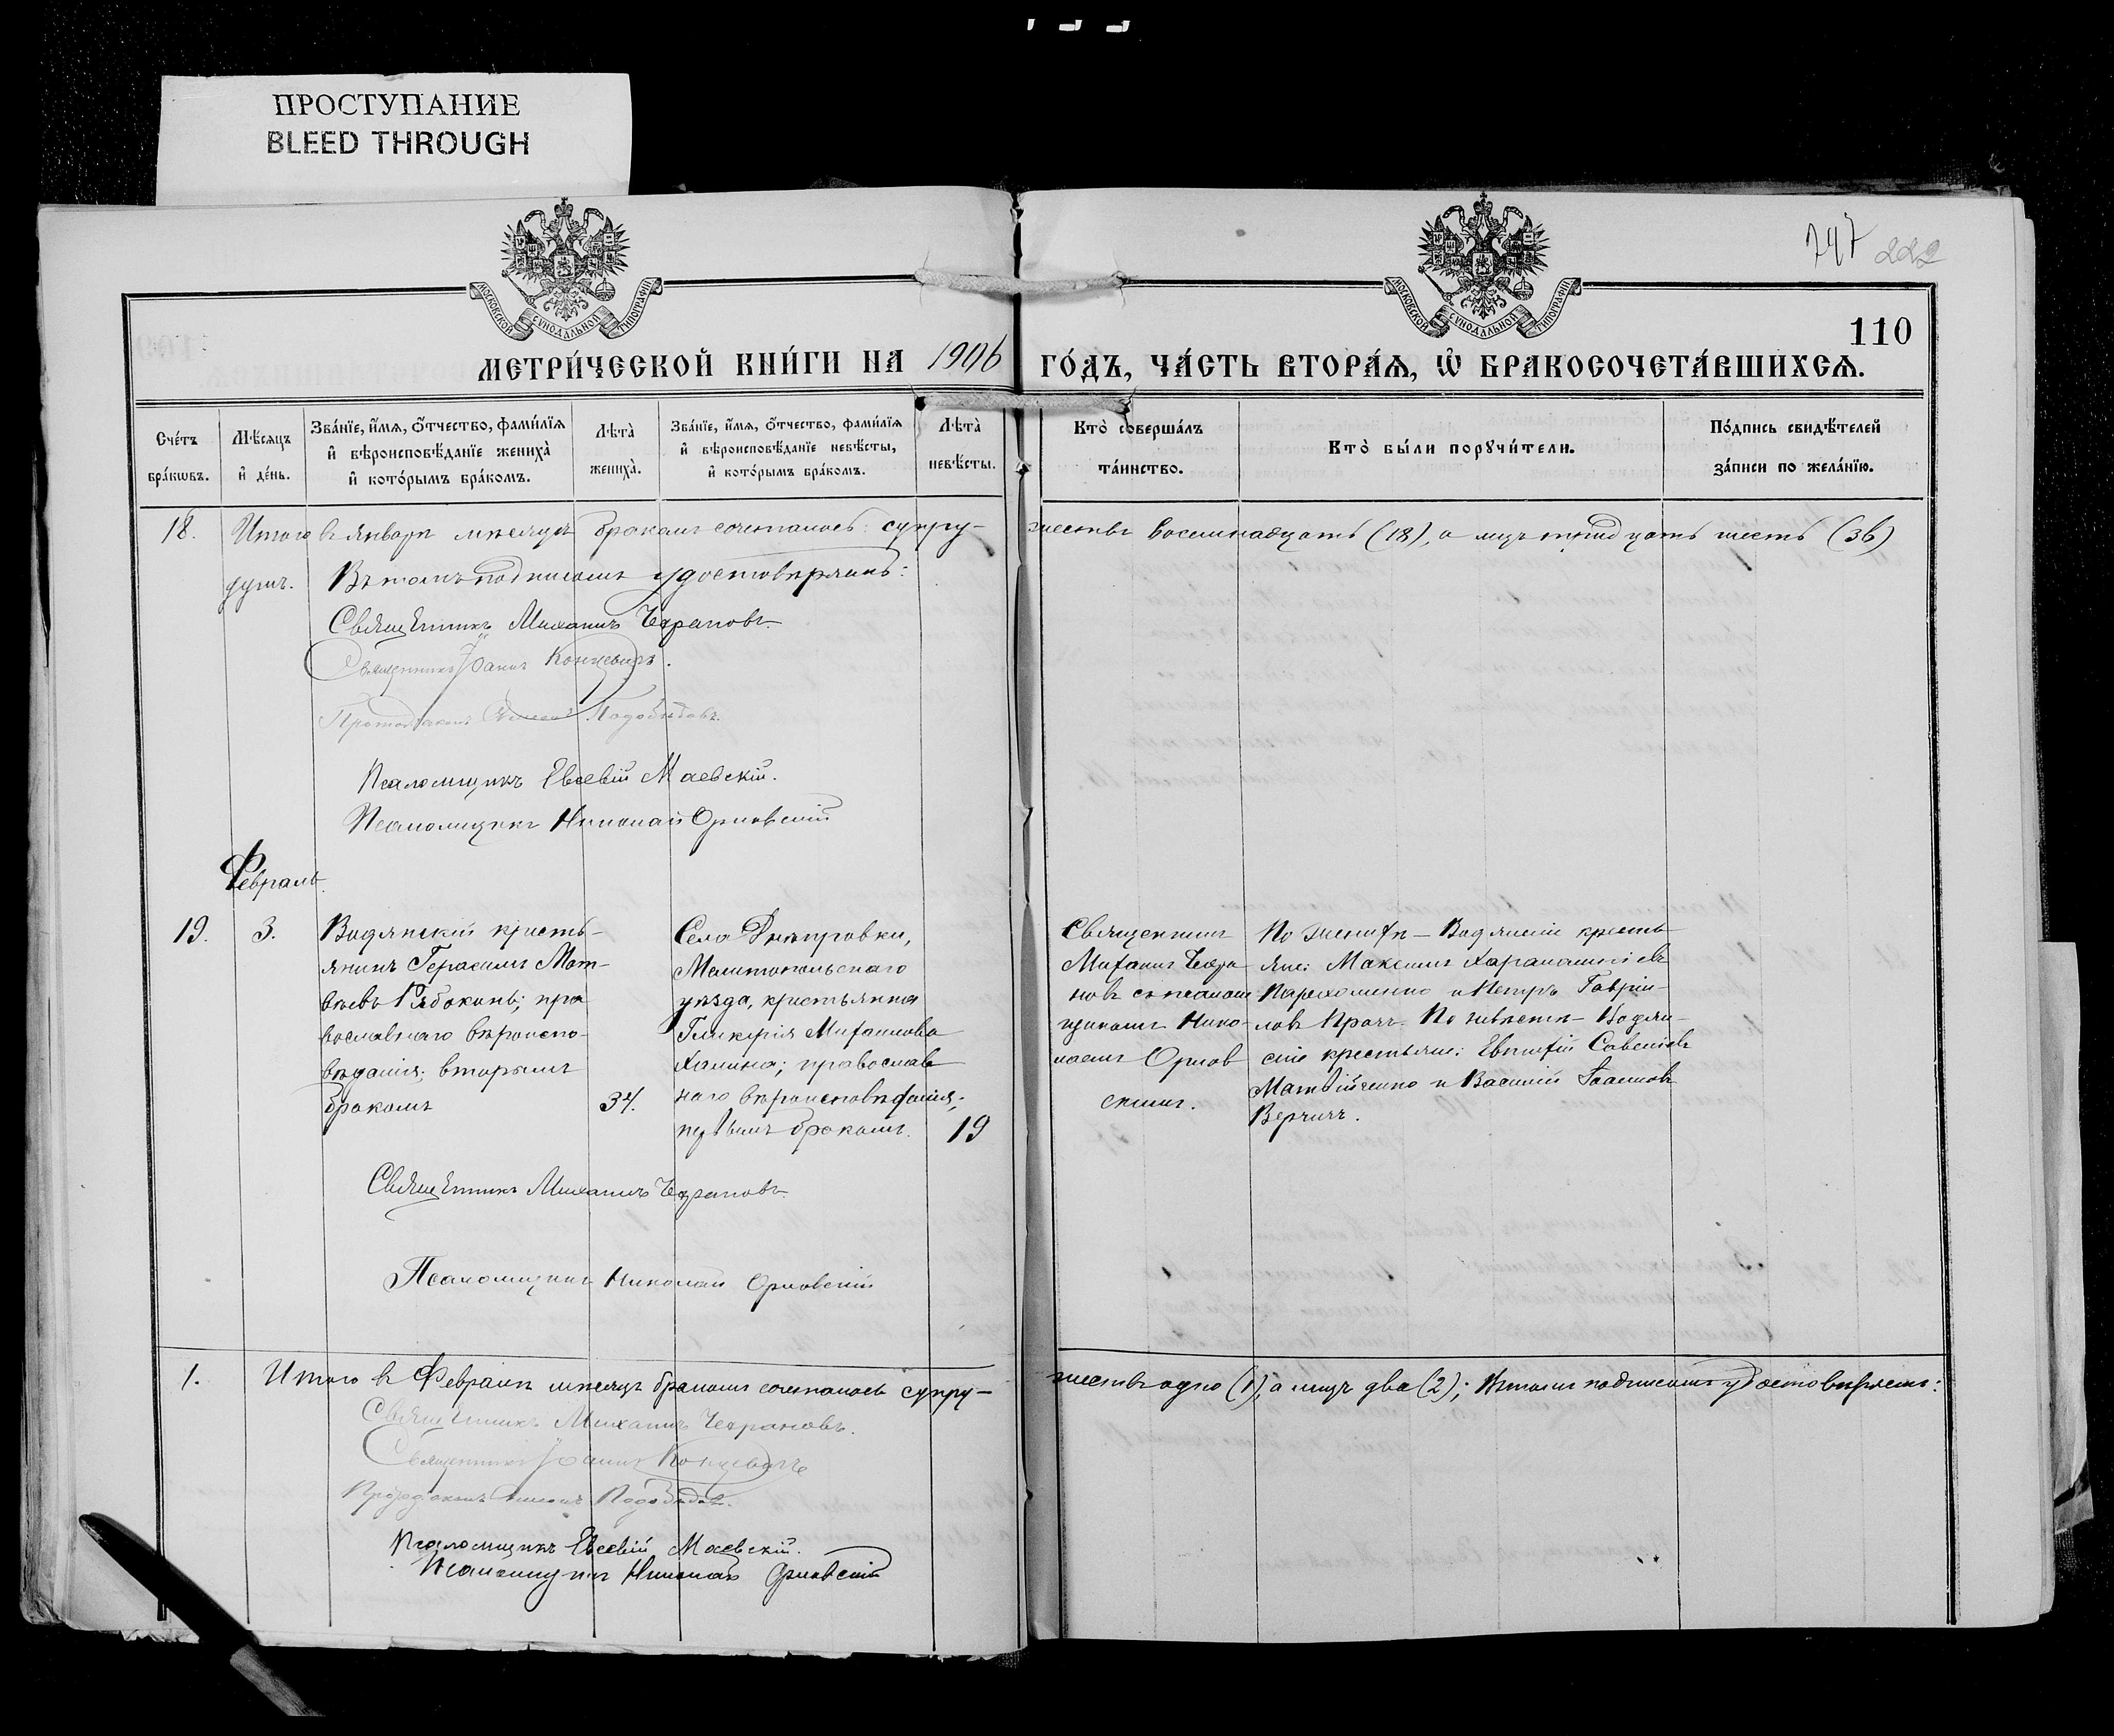 ПРОСТУПАНИЕ
BLEED THROUGH
МОСКОВСКОЙ СѴНОДАЛЬНОЙ ТИПОГРАФІИ
МОСКОВСКОЙ СѴНОДАЛЬНОЙ ТИПОГРАФІИ
222
110
МЕТРИ́ЧЕСКОЙ КНИ́ГИ НА 1906 ГО́ДЪ, ЧА́СТЬ ВТОРА́Ѧ, Ѡ҆ БРАКОСОЧЕТА́ВШИХСѦ.
Сче́тъ бра́кѡвъ.
Мѣ́сѧцъ и҆ де́нь.
Зва́нїе, и҆́мѧ, ѻ҆́тчество, фами́лїѧ
и҆ вѣроисповѣ́данїе жениха̀
и҆ кото́рымъ бра́комъ.
Лѣта̀ жениха̀.
Зва́нїе, и҆́мѧ, ѻ҆́тчество, фами́лїѧ
и҆ вѣроисповѣ́данїе невѣ́сты,
и҆ кото́рымъ бра́комъ.
Лѣта̀ невѣ́сты.
Кто̀ соверша́лъ
та́инство.
Кто̀ бы́ли порꙋчи́тели.
По́дпись свидѣ́телей
за́писи по жела́нїю.
18. Итого въ Январѣ мѣсяцѣ бракомъ сочеталось: супру-
жествъ восемнадцать (18), а лицъ тридцать шесть (36)
душъ. Въ томъ подписомъ удостовѣряемъ:
Священникъ Михаилъ Чехрановъ.
Священникъ Іоаннъ Концевичъ.
Протодіаконъ Подобѣдовъ.
Псаломщикъ Евсевій Маевскій.
Псаломщикъ Николай Орловскій
Февраль.
19.
3.
Водянскій кресть-
янинъ Герасимъ Мат-
вѣевъ Рябоконь; пра
вославнаго вѣроиспо-
вѣданія; вторымъ
бракомъ
34.
Села Днѣпровки,
Мелитопольскаго
уѣзда, крестьянка
Гликерія Михаилова
Халина; православ
наго вѣроисповѣданія;
первымъ бракомъ.
19
Священникъ
Михаилъ Чехра
новъ съ псалом
щикомъ Нико-
лаемъ Орлов
скимъ.
По женихѣ – Водянскіе кресть
яне: Максимъ Харалампіевъ
Пархоменко и Петръ Гаврі-
ловъ Прачъ. По невѣстѣ – Водян-
скіе крестьяне: Евтихій Савеліевъ
Матвійченко и Василій Іоанновъ
Верчичъ.
Священникъ Михаилъ Чехрановъ.
Псаломщикъ Николай Орловскій
1. Итого въ Февралѣ мѣсяцѣ бракомъ сочеталось супру-
жествъ одно (1), а лицъ два (2); въ томъ подписомъ удостовѣряемъ:
Священникъ Михаилъ Чехрановъ.
Священникъ Іоаннъ Концевичъ
Протодіаконъ Подобѣдовъ.
Псаломщикъ Евсевій Маевскій.
Псаломщикъ Николай Орловскій